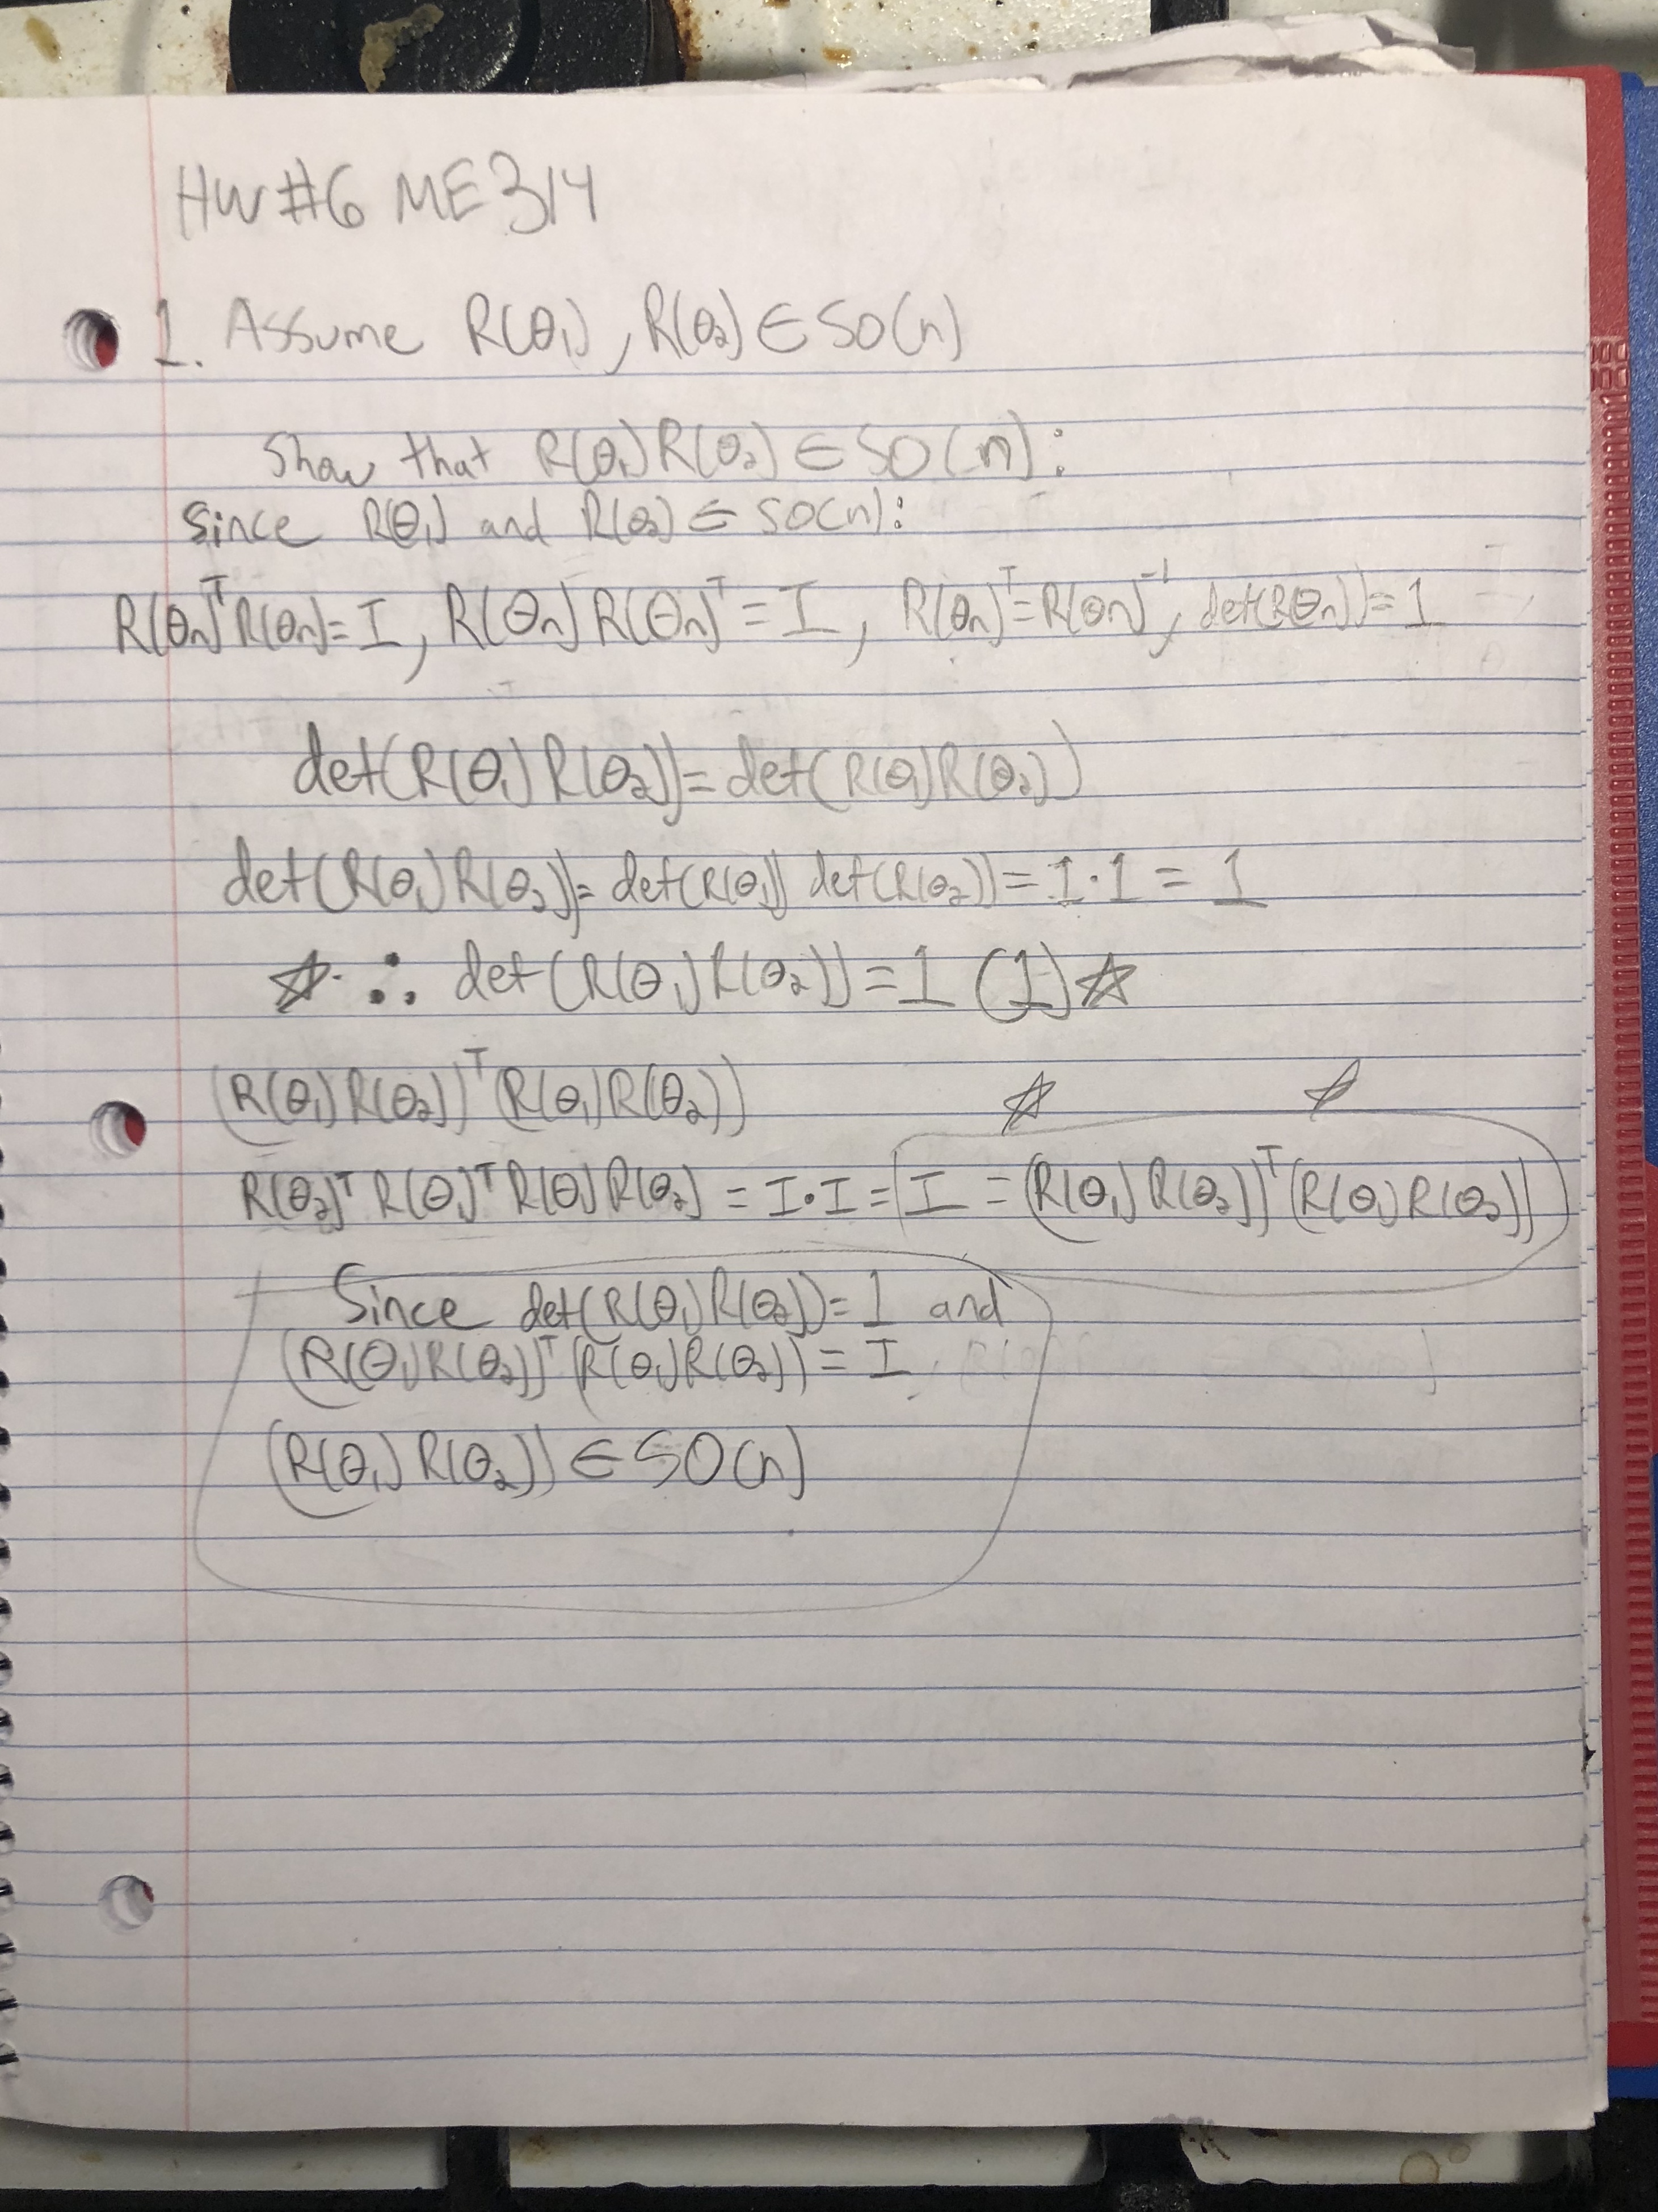 HW #6 ME 314
1. Assume R(θ₁), R(θ₂) ∈ SO(n)
Show that R(θ₁)R(θ₂) ∈ SO(n):
Since R(θ₁) and R(θ₂) ∈ SO(n):
R(θn)ᵀR(θn) = I, R(θn)R(θn)ᵀ = I, R(θn)ᵀ = R(θn)⁻¹, det(R(θn)) = 1
det(R(θ₁)R(θ₂)) = det(R(θ₁)R(θ₂))
det(R(θ₁)R(θ₂)) = det(R(θ₁)) det(R(θ₂)) = 1·1 = 1
☆ ∴ det(R(θ₁)R(θ₂)) = 1 (1) ☆
(R(θ₁)R(θ₂))ᵀ(R(θ₁)R(θ₂))
☆ ☆
R(θ₂)ᵀR(θ₁)ᵀR(θ₁)R(θ₂) = I·I = I = (R(θ₁)R(θ₂))ᵀ(R(θ₁)R(θ₂))
Since det(R(θ₁)R(θ₂)) = 1 and
(R(θ₁)R(θ₂))ᵀ(R(θ₁)R(θ₂)) = I,
(R(θ₁)R(θ₂)) ∈ SO(n)